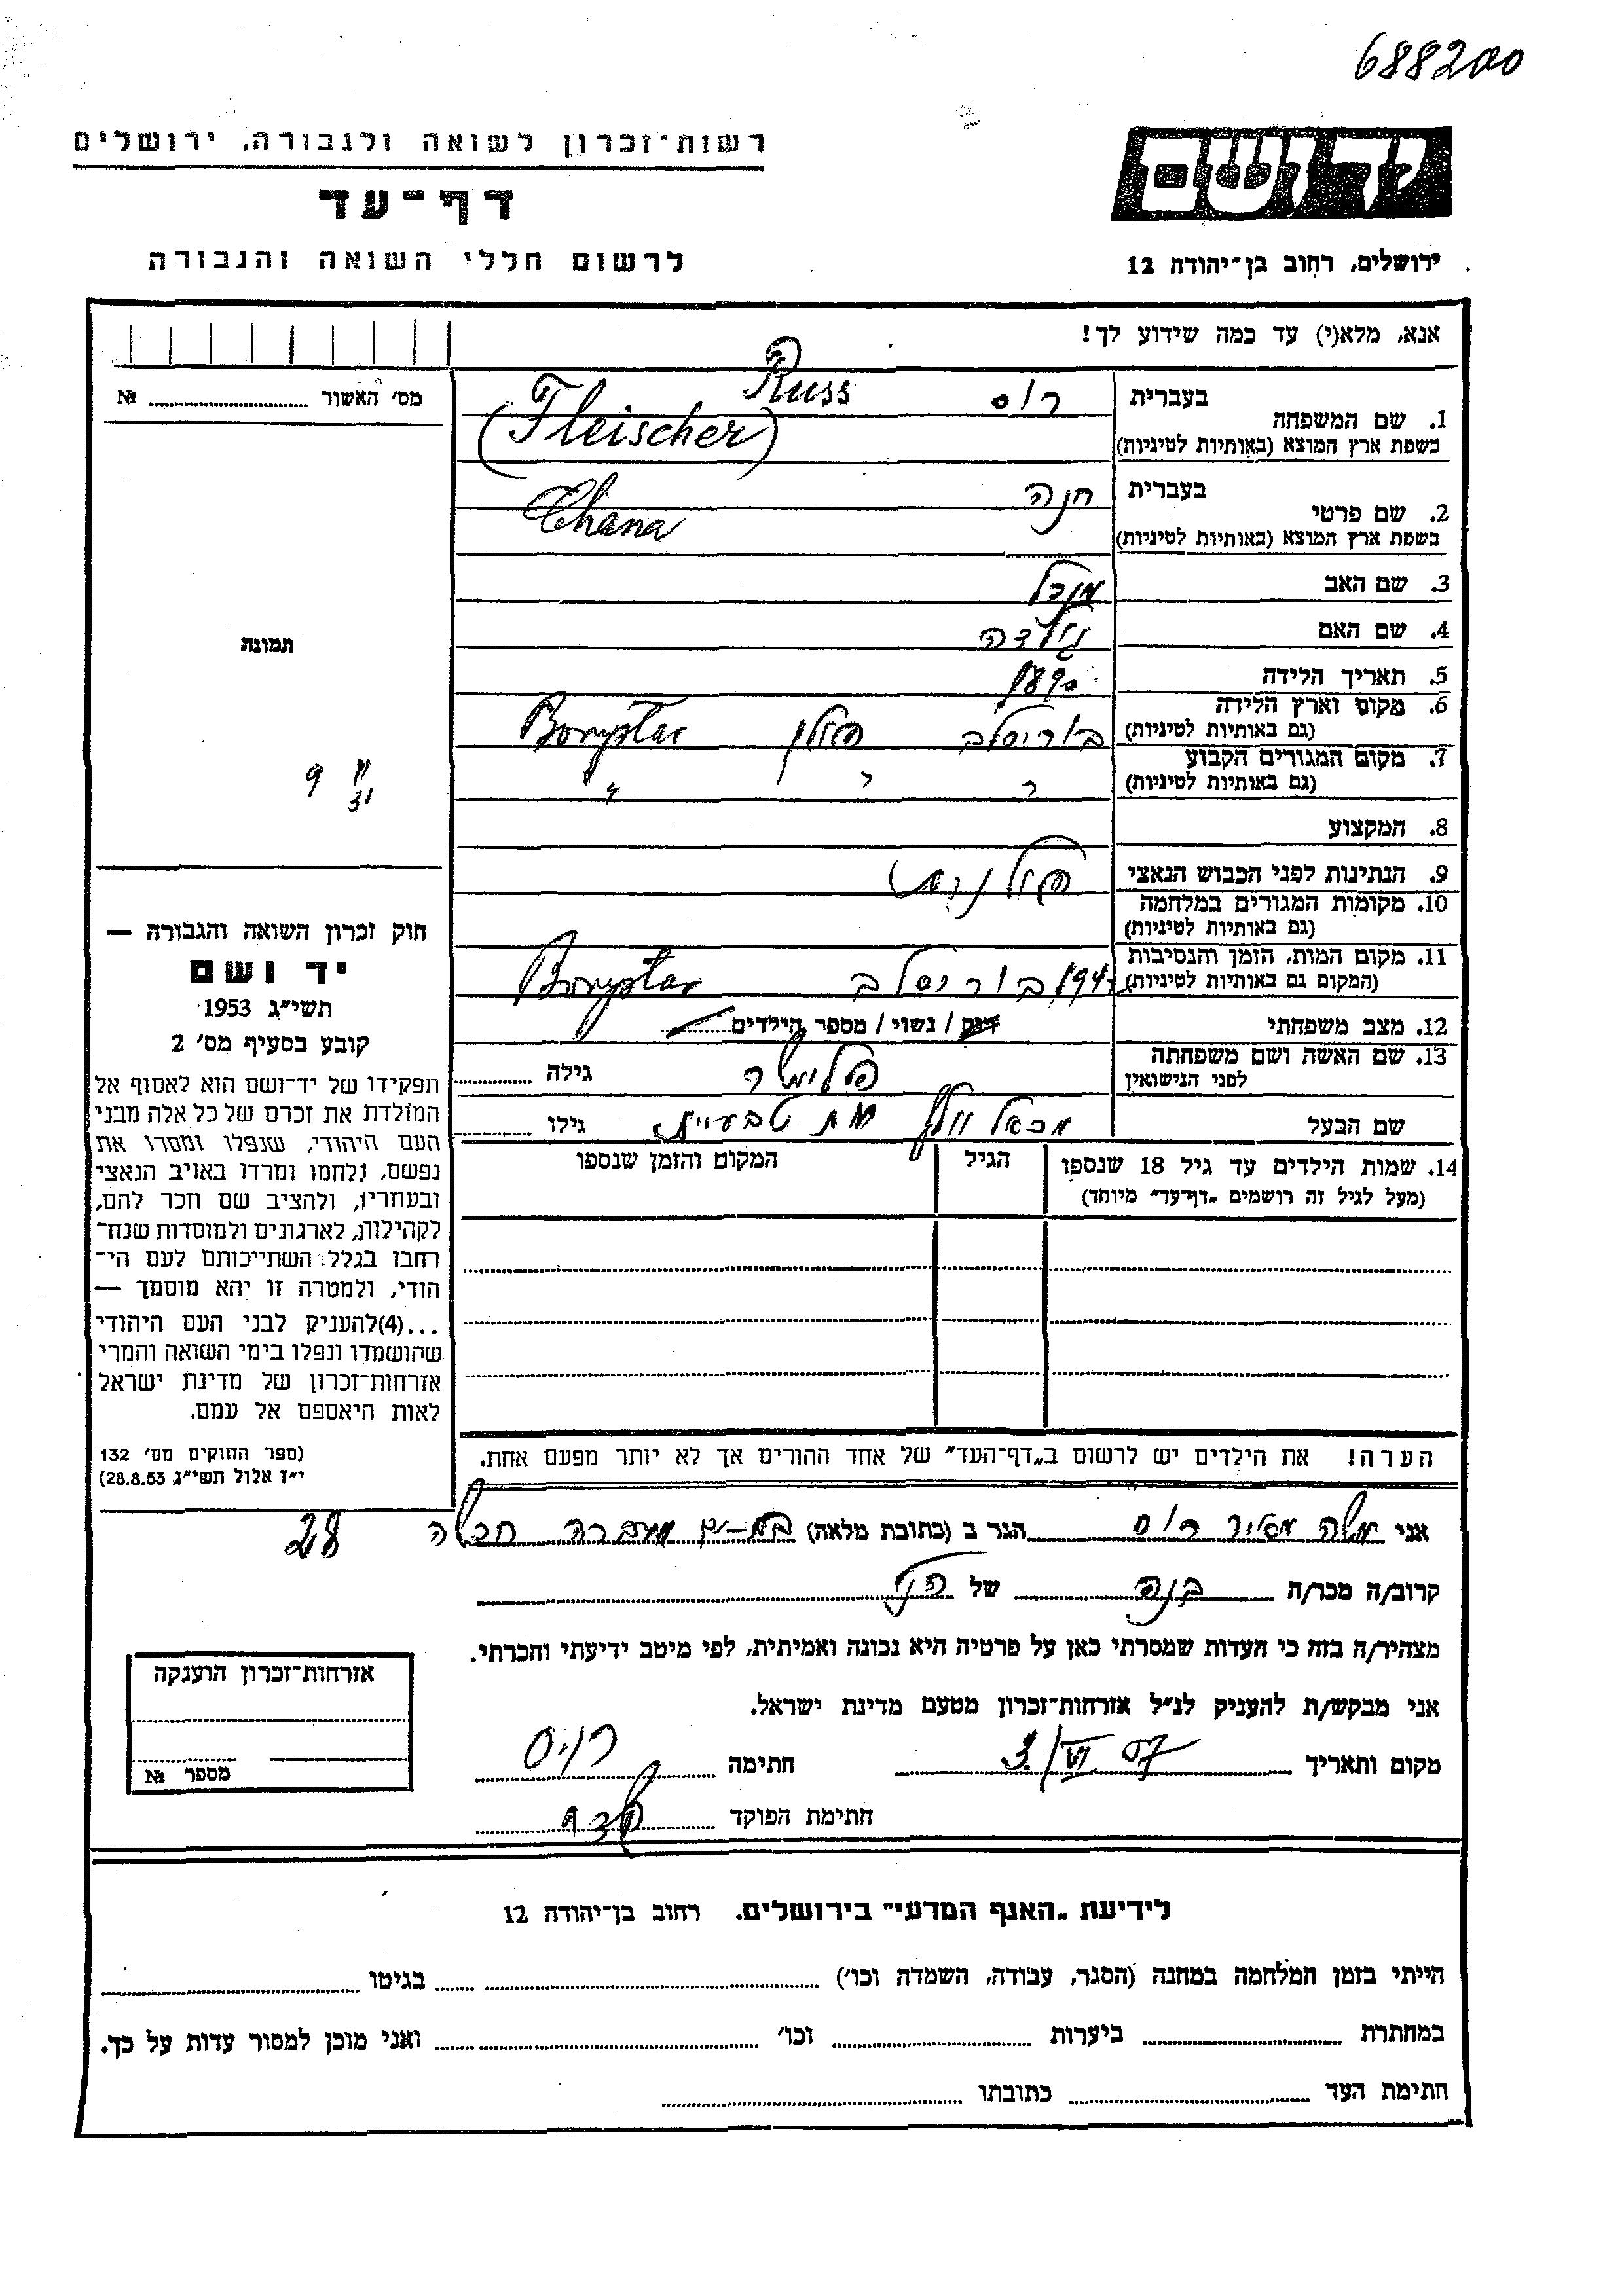 688200
רשות־זכרון לשואה ולגבורה. ירושלים
דף־עד
לרשום חללי השואה והגבורה
יד ושם
ירושלים, רחוב בן־יהודה 12
אנא, מלא(י) עד כמה שידוע לך!
מס׳ האשור № 
1. שם המשפחה
בעברית רוס Russ
בשפת ארץ המוצא (באותיות לטיניות) (Fleischer)
2. שם פרטי
בעברית חנה
בשפת ארץ המוצא (באותיות לטיניות) Chana
3. שם האב מנדל
4. שם האם
5. תאריך הלידה
6. מקום וארץ הלידה
(גם באותיות לטיניות) בוריסלב פולין Borysław
7. מקום המגורים הקבוע
(גם באותיות לטיניות)
8. המקצוע
9. הנתינות לפני הכבוש הנאצי פולנית
10. מקומות המגורים במלחמה
(גם באותיות לטיניות)
11. מקום המות, הזמן והנסיבות
(המקום גם באותיות לטיניות) בוריסלב Borysław
12. מצב משפחתי רווק / נשוי / מספר הילדים
13. שם האשה ושם משפחתה
לפני הנישואין פליישר גילה
שם הבעל מת טבעית גילו
14. שמות הילדים עד גיל 18 שנספו
(מעל לגיל זה רושמים „דף־עד״ מיוחד)
הגיל
המקום והזמן שנספו
הערה! את הילדים יש לרשום ב„דף־העד״ של אחד ההורים אך לא יותר מפעם אחת.
תמונה
9
חוק זכרון השואה והגבורה —
יד ושם
תשי״ג 1953
קובע בסעיף מס׳ 2
תפקידו של יד־ושם הוא לאסוף אל
המולדת את זכרם של כל אלה מבני
העם היהודי, שנפלו ומסרו את
נפשם, נלחמו ומרדו באויב הנאצי
ובעוזריו, ולהציב שם וזכר להם,
לקהילות, לארגונים ולמוסדות שנח־
רבו בגלל השתייכותם לעם הי־
הודי, ולמטרה זו יהא מוסמך —
...(4)להעניק לבני העם היהודי
שהושמדו ונפלו בימי השואה והמרי
אזרחות־זכרון של מדינת ישראל
לאות היאספם אל עמם.
(ספר החוקים מס׳ 132
י״ז אלול תשי״ג 28.8.53)
אני משה מאיר רוס הגר ב (כתובת מלאה) בת־ים מעברה 28
קרוב/ה מכר/ה בנה של הנ״ל
מצהיר/ה בזה כי העדות שמסרתי כאן על פרטיה היא נכונה ואמיתית, לפי מיטב ידיעתי והכרתי.
אני מבקש/ת להעניק לנ״ל אזרחות־זכרון מטעם מדינת ישראל.
מקום ותאריך 3/VI 57 חתימה רוס
חתימת הפוקד
אזרחות־זכרון הוענקה
מספר №
לידיעת „האגף המדעי״ בירושלים. רחוב בן־יהודה 12
הייתי בזמן המלחמה במחנה (הסגר, עבודה, השמדה וכו׳) בגיטו
במחתרת ביערות וכו׳ ואני מוכן למסור עדות על כך.
חתימת העד כתובתו